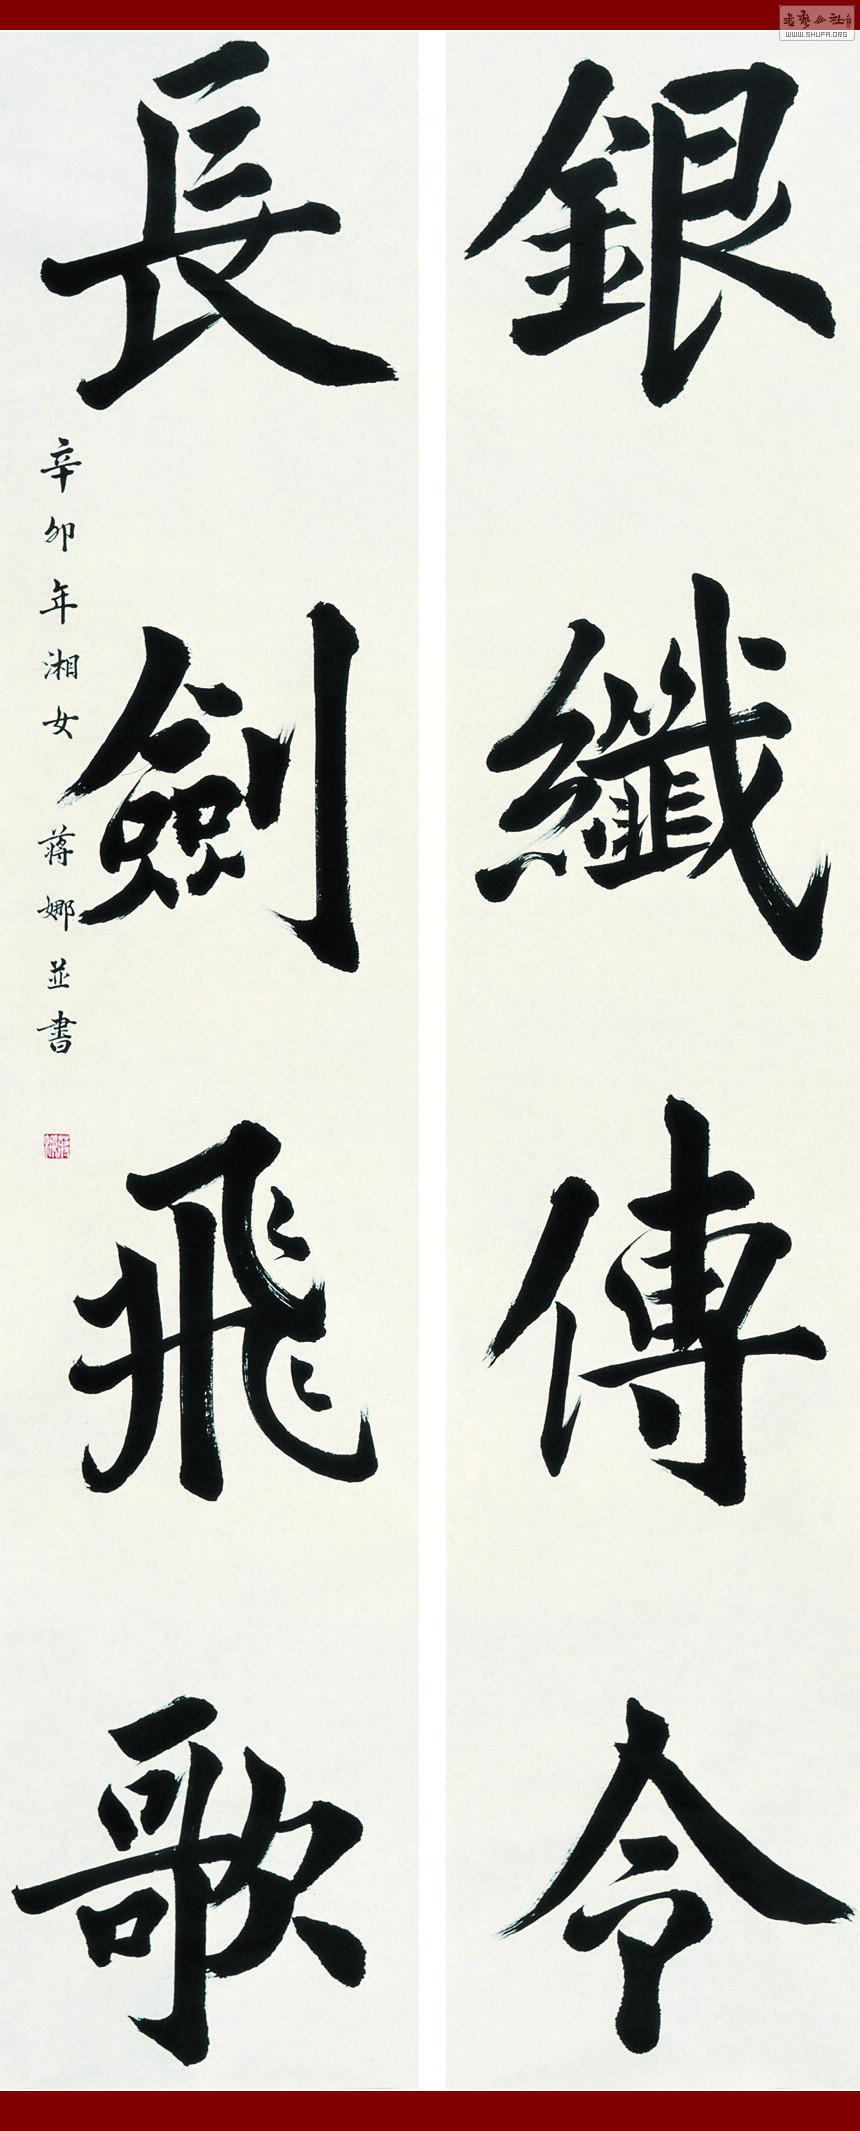 銀纖傳令
長劍飛歌
辛卯年湘女 蔣娜並書
WWW.SHUFA.ORG